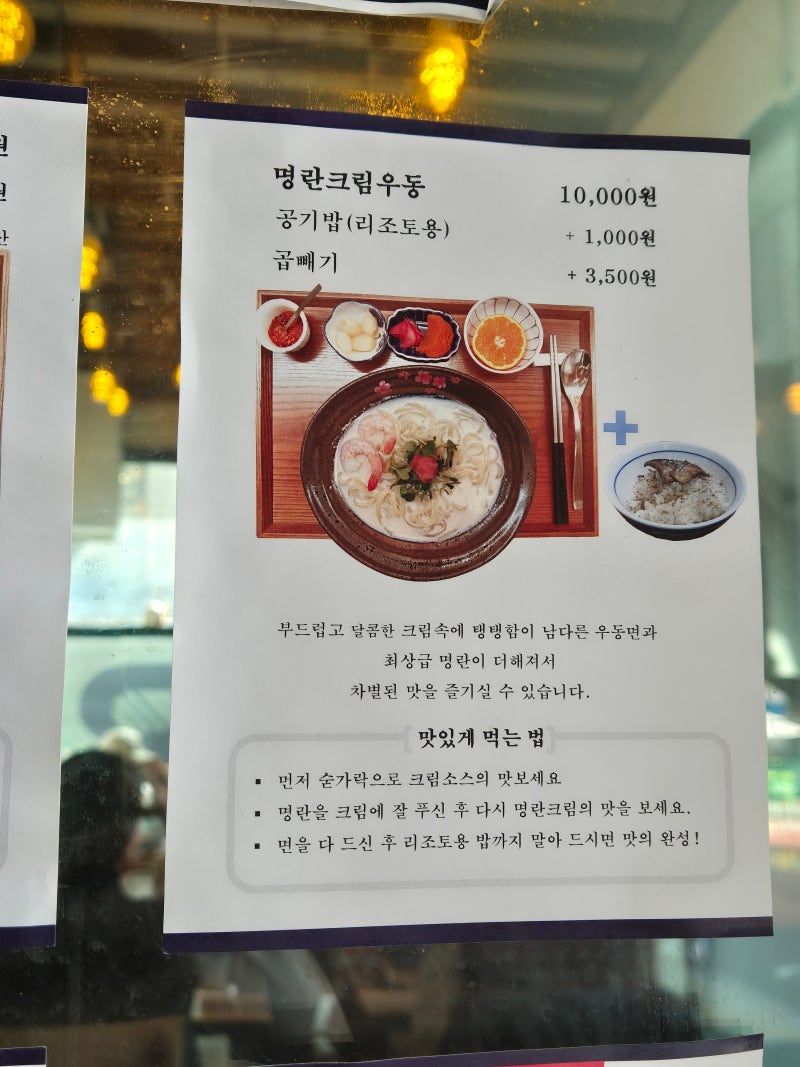 명란크림우동 10,000원
공기밥(리조토용) + 1,000원
곱빼기 + 3,500원
부드럽고 달콤한 크림속에 탱탱함이 남다른 우동면과
최상급 명란이 더해져서
차별된 맛을 즐기실 수 있습니다.
맛있게 먹는 법
▪ 먼저 숟가락으로 크림소스의 맛보세요
▪ 명란을 크림에 잘 푸신 후 다시 명란크림의 맛을 보세요.
▪ 면을 다 드신 후 리조토용 밥까지 말아 드시면 맛의 완성!
원
원
산